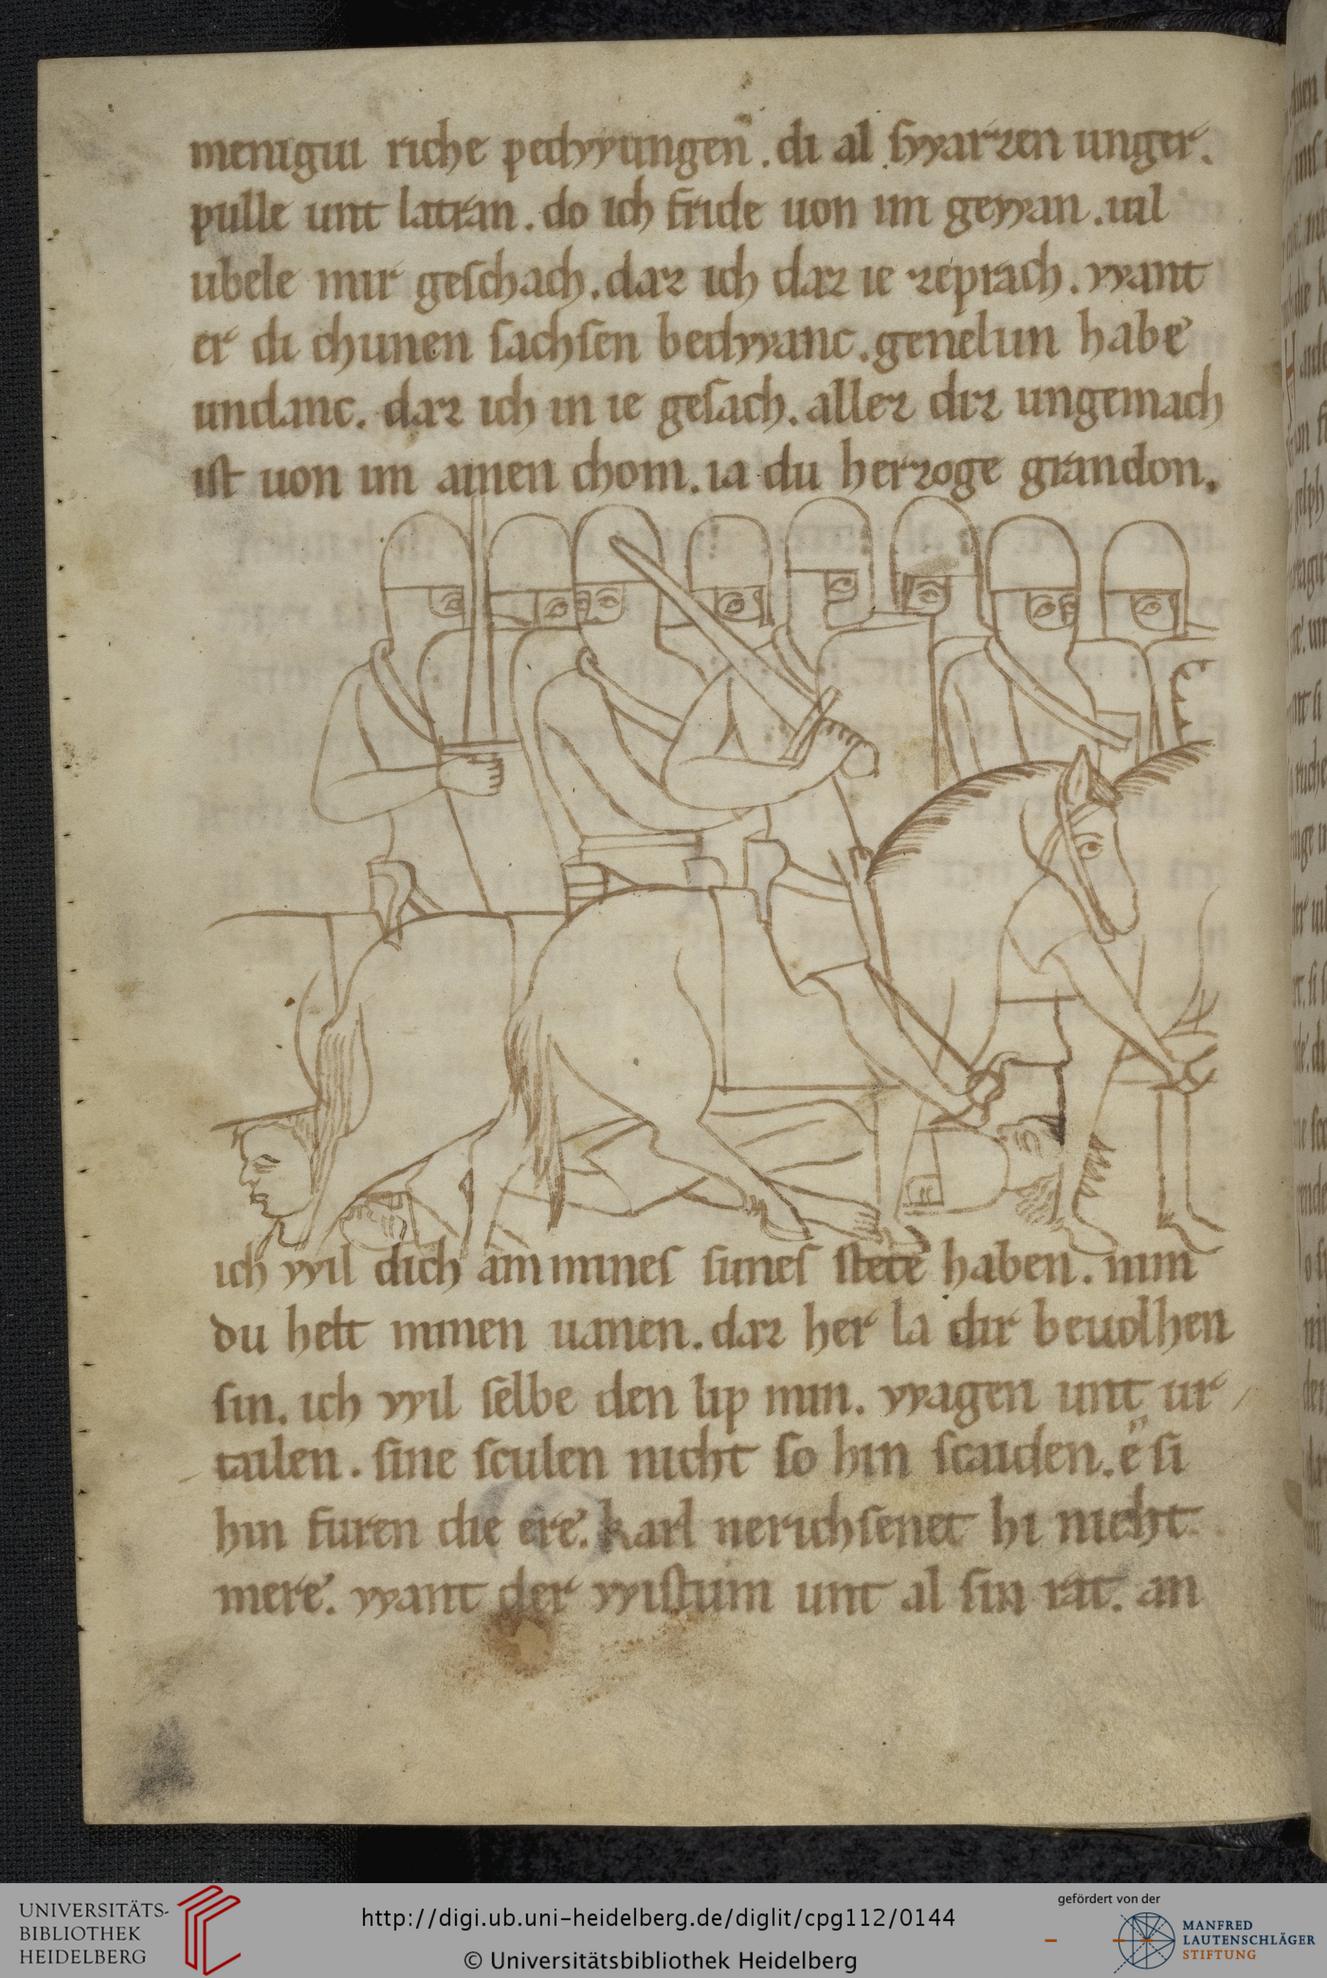 menigiu riche pechwungen. di al swarzen unger.
pulle unt latran. do ich fride uon im gewan. uil
ubele mir geſchach. daz ich daz ie zeprach. want
er di chunen ſachſen bechwanc. genelun habe
undanc. daz ich in ie geſach. allez diz ungemach
iſt uon im ainen chom. ia du herzoge grandon.
ich wil dich an mines ſunes ſtete haben. nim
du helt minen uanen. daz her la dir beuolhen
ſin. ich wil ſelbe den lip min. wagen unt ur
tailen. ſine ſculen nicht ſo hin ſcaiden. e ſi
hin furen die ere. karl nerichſenet hi nicht
mere. want der wiſtům unt al ſin rat. an
UNIVERSITÄTS-
BIBLIOTHEK
HEIDELBERG
http://digi.ub.uni-heidelberg.de/diglit/cpg112/0144
© Universitätsbibliothek Heidelberg
gefördert von der
MANFRED
LAUTENSCHLÄGER
STIFTUNG